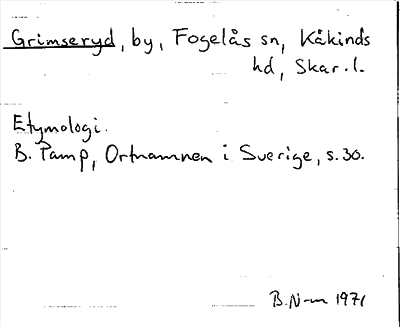 Grimseryd, by, Fogelås sn, Kåkinds
hd, Skar. l.
Etymologi.
B. Pamp, Ortnamnen i Sverige, s. 30.
B. N-m 1971